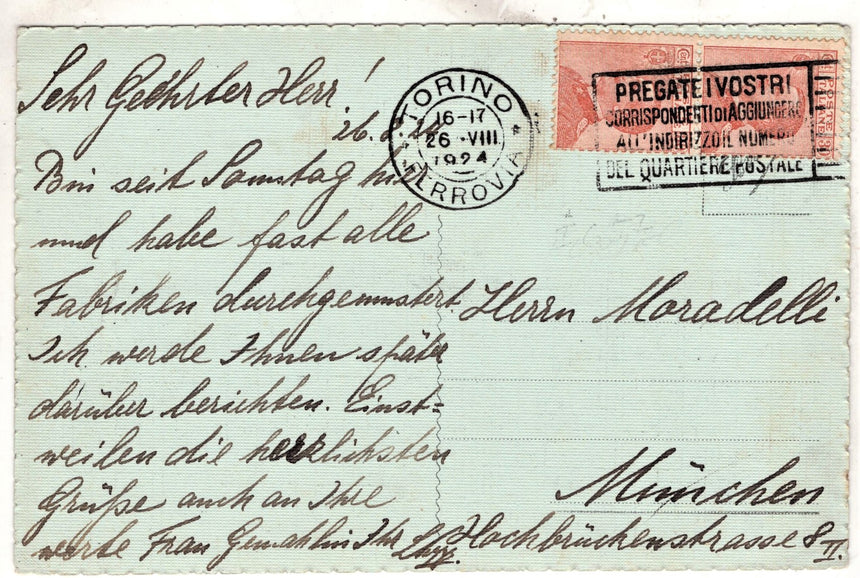 Sehr Geehrter Herr!
26.8.24
Bin seit Samstag hier
und habe fast alle
Fabriken durchgemustert.
Ich werde Ihnen später
darüber berichten. Einst=
weilen die herzlichsten
Grüße auch an Ihre
werte Frau Gemahlin Ihr
TORINO
16-17
26 ·VIII
1924
* FERROVIA *
PREGATE I VOSTRI
CORRISPONDENTI DI AGGIUNGERE
ALL'INDIRIZZO IL NUMERO
DEL QUARTIERE POSTALE
POSTE
ITALIANE
Herrn Moradelli
München
Hochbrückenstrasse 8 II.